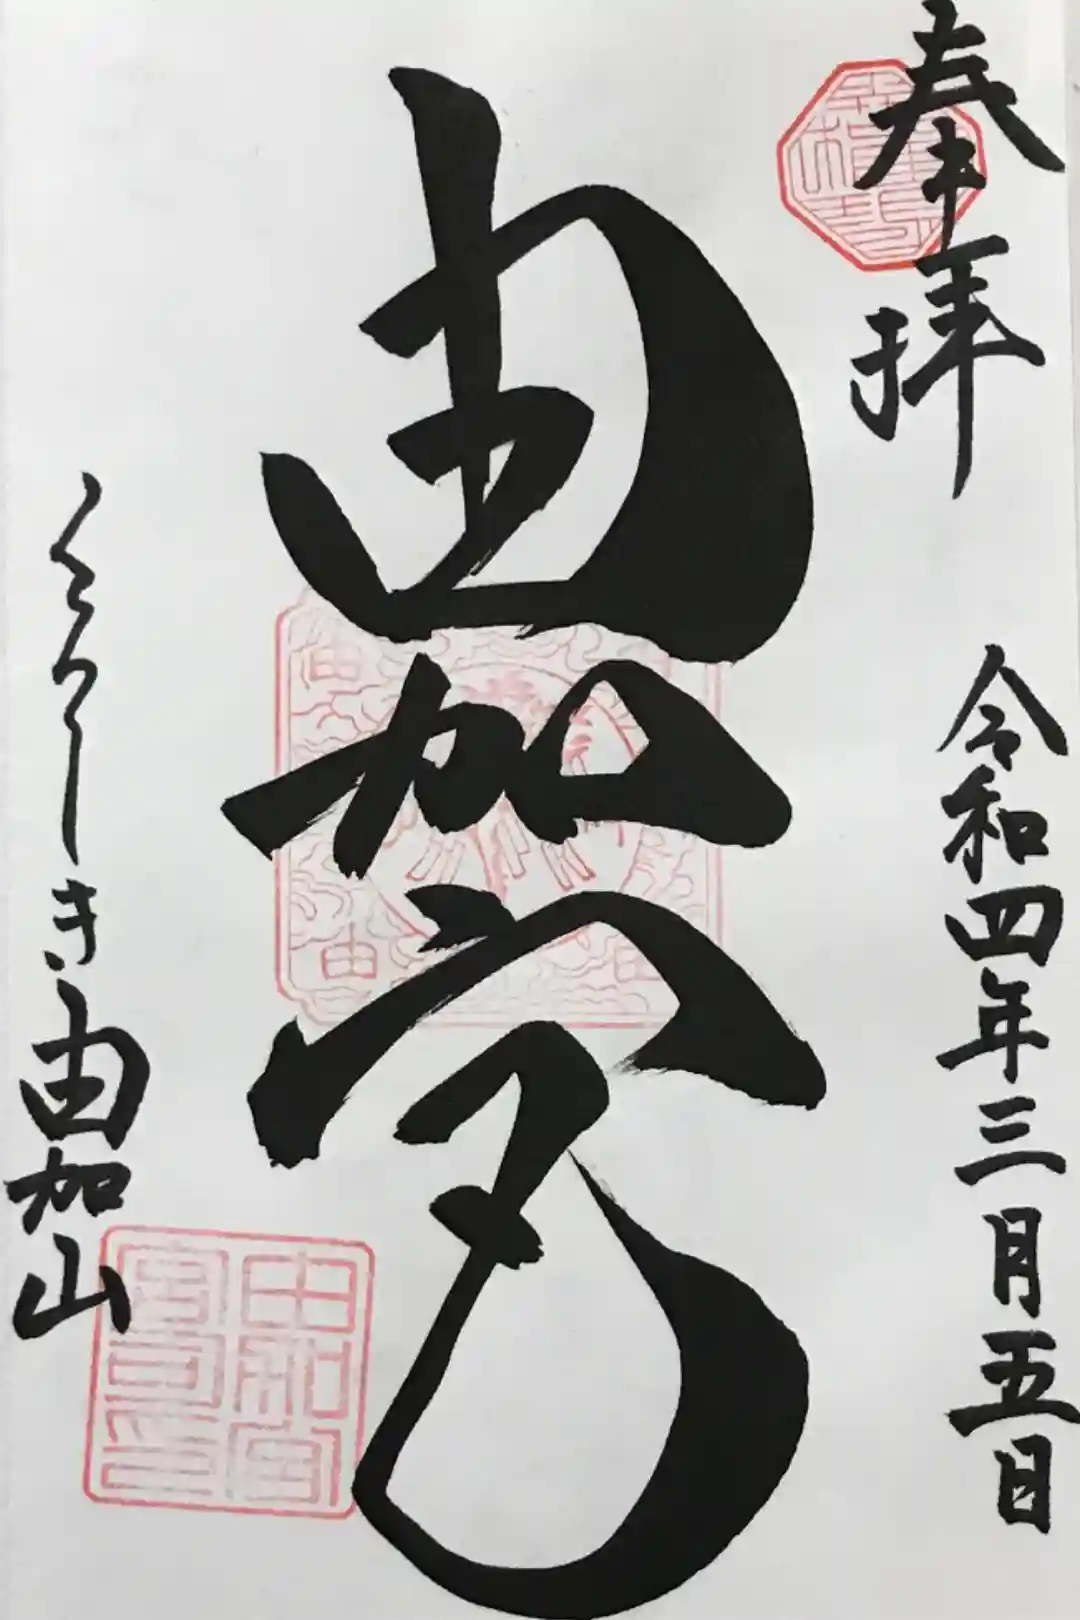 奉拝
令和四年三月五日
由加宮
くらしき由加山